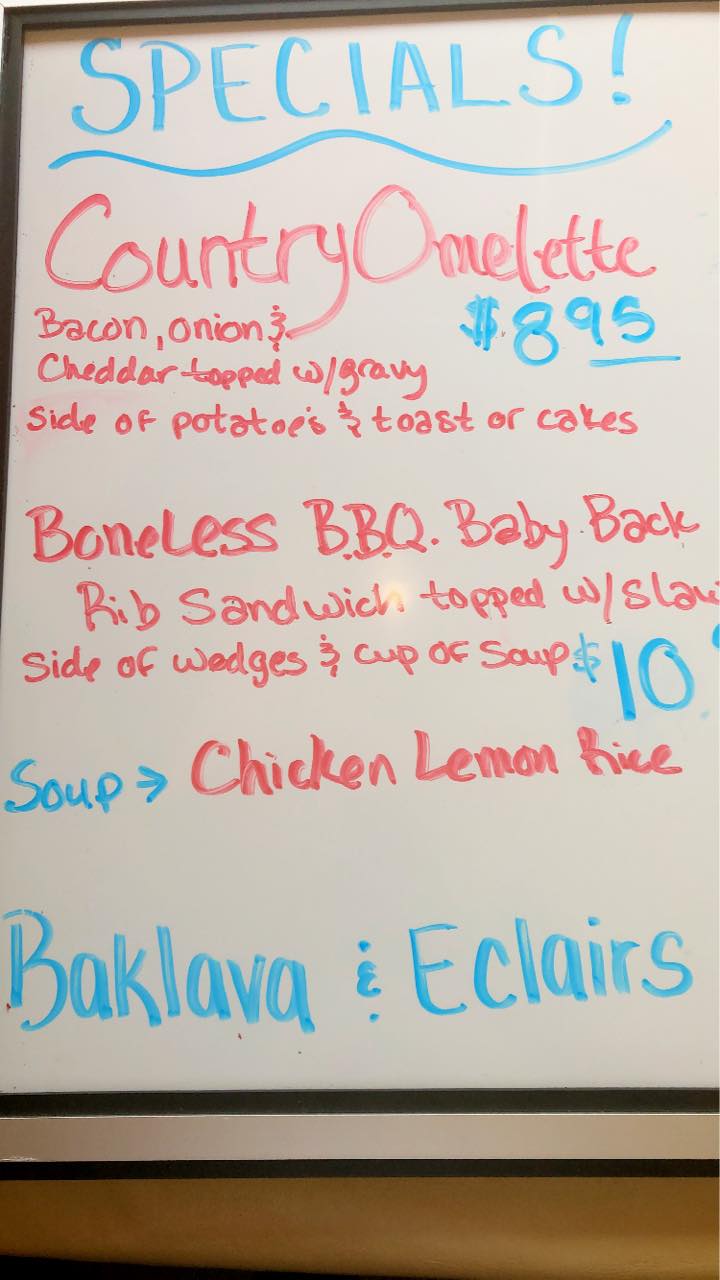 SPECIALS!
Country Omelette
Bacon, onion &
$8 95
Cheddar topped w/gravy
side of potatoe's & toast or cakes
Boneless B.B.Q. Baby Back
Rib Sandwich topped w/slaw
side of wedges & cup of soup $10
Soup → Chicken Lemon Rice
Baklava & Eclairs